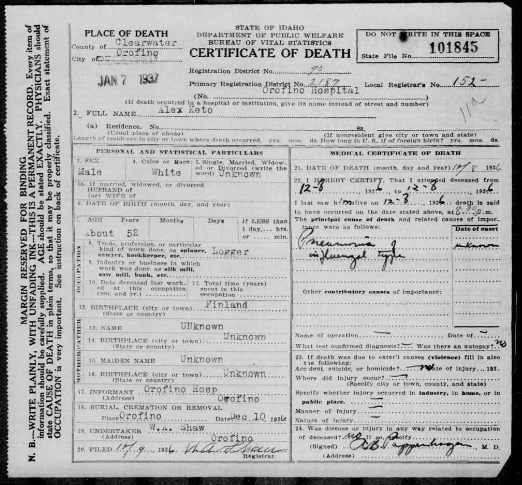 STATE OF IDAHO
DEPARTMENT OF PUBLIC WELFARE
BUREAU OF VITAL STATISTICS
CERTIFICATE OF DEATH
DO NOT WRITE IN THIS SPACE
State File No. 101845
PLACE OF DEATH
County of Clearwater
City of Orofino
JAN 7 1937
Registration District No. 90
Primary Registration District No. 2187
Local Registrar's No. 152
Orofino Hospital
(No.
(If death occurred in a hospital or institution, give its name instead of street and number)
11a
2. FULL NAME Alex Keto
(a) Residence. No. St.
(Usual place of abode)
(If nonresident give city or town and state)
Length of residence in city or town where death occurred. yrs. mos. ds. How long in U. S., if of foreign birth? yrs. mos. ds.
PERSONAL AND STATISTICAL PARTICULARS
3. SEX 4. Color or Race 5. Single, Married, Widow, or Divorced (write the word)
Male White Unknown
5a. If married, widowed, or divorced
HUSBAND of
(or) WIFE of
6. DATE OF BIRTH (month, day, and year)
7. AGE Years Months Days If LESS than 1 day, hrs. or min.
About 52
8. Trade, profession, or particular kind of work done, as spinner, sawyer, bookkeeper, etc. Logger
9. Industry or business in which work was done, as silk mill, saw mill, bank, etc.
10. Date deceased last worked at this occupation (mo. and yr.)
11. Total time (years) spent in this occupation
12. BIRTHPLACE (city or town) Finland
(State or country)
FATHER
13. NAME UNknown
14. BIRTHPLACE (city or town) Unknown
(State or country)
MOTHER
15. MAIDEN NAME Unknown
16. BIRTHPLACE (city or town) Unknown
(State or country)
17. INFORMANT Orofino Hosp
(Address) Orofino
18. BURIAL, CREMATION OR REMOVAL
Place Orofino Date Dec 10 1936
19. UNDERTAKER W.A. Shaw
(Address) Orofino
20. FILED 12/9 1936
Registrar.
MEDICAL CERTIFICATE OF DEATH
21. DATE OF DEATH (month, day and year) 12/8 1936
22. I HEREBY CERTIFY, That I attended deceased from
12-8 1936 to 12-8 1936
I last saw him on 12-8 1936 death is said
to have occurred on the date stated above, at m.
The principal cause of death and related causes of importance were as follows:
Date of onset
Pneumonia of
influenzal type
unknown
Other contributory causes of importance:
Name of operation Date of
What test confirmed diagnosis? Was there an autopsy? no
23. If death was due to exter'l causes (violence) fill in also the following:
Accident, suicide, or homicide? Date of injury 193
Where did injury occur?
(Specify city or town, county, and state)
Specify whether injury occurred in industry, in home, or in public place.
Manner of injury
Nature of injury
24. Was disease or injury in any way related to occupation of deceased? If so, specify
(Signed) M. D.
(Address) Orofino
MARGIN RESERVED FOR BINDING
N. B.—WRITE PLAINLY, WITH UNFADING INK—THIS IS A PERMANENT RECORD. Every item of information should be carefully supplied. AGE should be stated EXACTLY. PHYSICIANS should state CAUSE OF DEATH in plain terms, so that it may be properly classified. Exact statement of OCCUPATION is very important. See instruction on back of certificate.